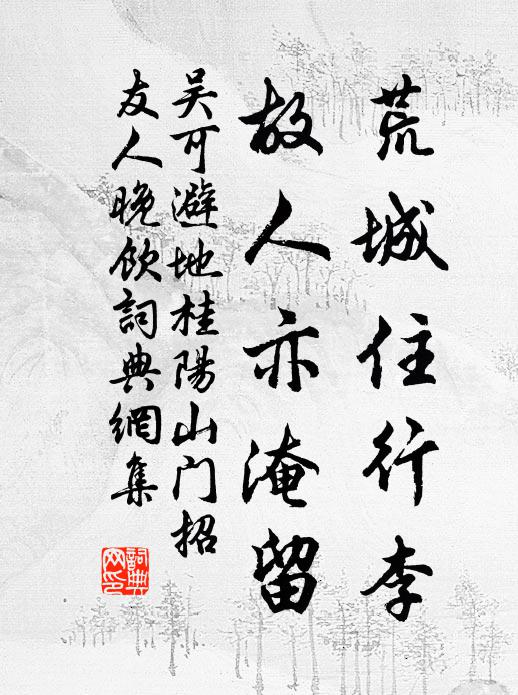 荒城住行李
故人亦淹留
吴可避地桂陽山门招
友人晚飲詞典網集
詞典
网印